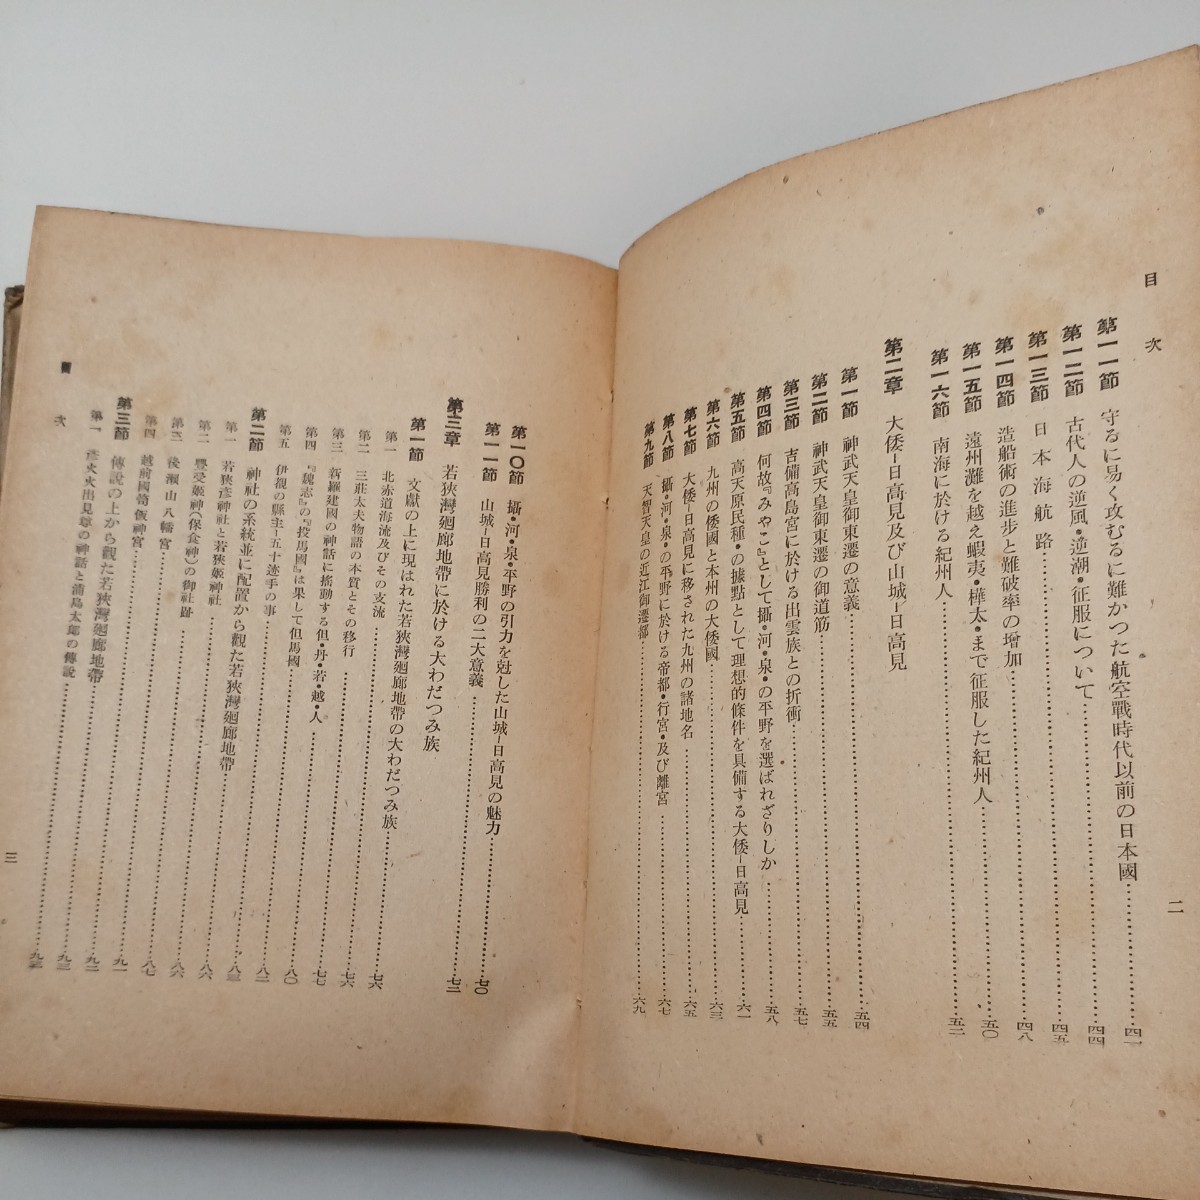 目次
第一一節 守るに易く攻むるに難かつた航空戰時代以前の日本國……四一
第一二節 古代人の逆風・逆潮・征服について……四四
第一三節 日本海航路……四五
第一四節 造船術の進步と難破率の增加……四八
第一五節 遠州灘を越え蝦夷・樺太・まで征服した紀州人……五〇
第一六節 南海に於ける紀州人……五二
第二章 大倭=日高見及び山城=日高見
第一節 神武天皇御東遷の意義……五四
第二節 神武天皇御東遷の御道筋……五五
第三節 吉備高島宮に於ける出雲族との折衝……五七
第四節 何故『みやこ』として攝・河・泉・の平野を選ばれざりしか……五八
第五節 高天原民種・の據點として理想的條件を具備する大倭=日高見……六一
第六節 九州の倭國と本州の大倭國……六三
第七節 大倭=日高見に移された九州の諸地名……六五
第八節 攝・河・泉・の平野に於ける帝都・行宮・及び離宮……六七
第九節 天智天皇の近江御遷都……六九
二
第一〇節 攝・河・泉・平野の引力を尅した山城=日高見の魅力
第一一節 山城=日高見勝利の二大意義……七〇
第三章 若狹灣廻廊地帶に於ける大わだつみ族……七二
第一節 文獻の上に現はれた若狹灣廻廊地帶の大わだつみ族
第一 北赤道海流及びその支流……七六
第二 三莊太夫物語の本質とその移行……七六
第三 新羅建國の神話に搖動する但・丹・若・越・人……七七
第四 『魏志』の『投馬國』は果して但馬國……八〇
第五 伊覩の縣主=五十迹手の事……八二
第二節 神社の系統並に配置から觀た若狹灣廻廊地帶
第一 若狹彥神社と若狹姬神社……八三
第二 豐受姬神(保食神)の御社趾……八六
第三 後瀨山八幡宮……八六
第四 越前國笥飯神宮……八七
第三節 傳說の上から觀た若狹灣廻廊地帶……九一
第一 彥火火出見尊の神話と浦島太郞の傳說……九二
次
三